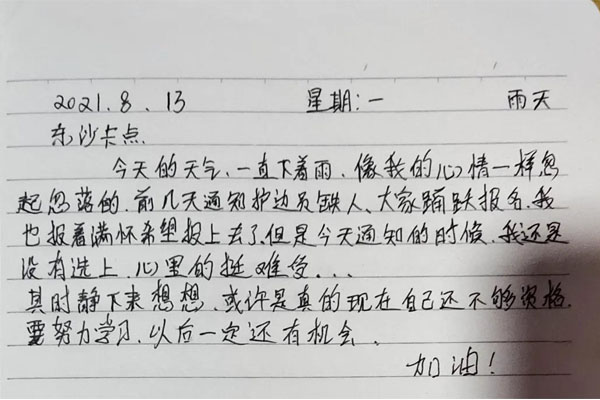 2021.8.13 星期:一 雨天
东沙卡点.
今天的天气,一直下着雨,像我的心情一样忽
起忽落的.前几天通知护边员铁人、大家踊跃报名.我
也报着满怀希望报上去了,但是今天通知的时候,我还是
没有选上,心里的挺难受...
其时静下来想想,或许是真的现在自己还不够资格.
要努力学习,以后一定还有机会.
加油!